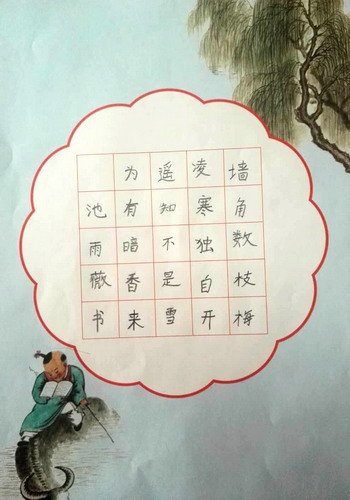 墙角数枝梅
凌寒独自开
遥知不是雪
为有暗香来
池雨薇书